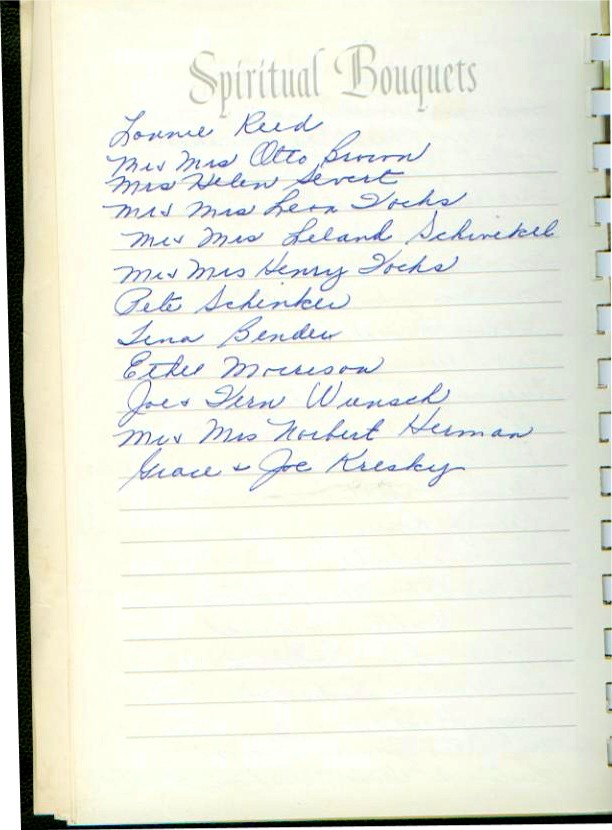 Spiritual Bouquets
Lonnie Reed
Mr & Mrs Otto Brown
Mrs Helen Severt
Mr & Mrs Leon Fochs
Mr & Mrs Leland Schwekel
Mr & Mrs Henry Fochs
Pete Schinker
Tena Bender
Ethel Morrison
Joe & Fern Wunsch
Mr & Mrs Norbert Herman
Grace & Joe Kresky